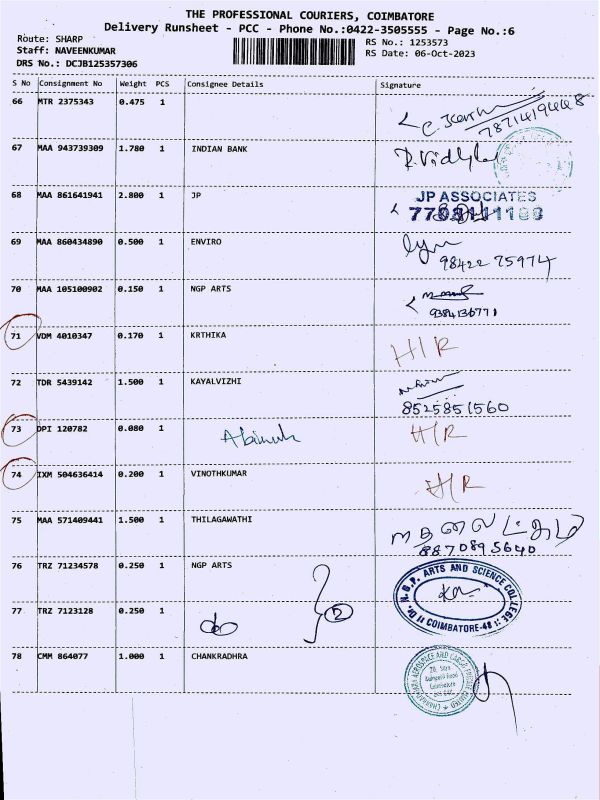 THE PROFESSIONAL COURIERS, COIMBATORE
Delivery Runsheet - PCC - Phone No.:0422-3505555 - Page No.:6
Route: SHARP
RS No.: 1253573
Staff: NAVEENKUMAR
RS Date: 06-Oct-2023
DRS No.: DCJB125357306
S No Consignment No Weight PCS Consignee Details Signature
66 MTR 2375343 0.475 1
7871419448
67 MAA 943739309 1.780 1 INDIAN BANK
68 MAA 861641941 2.800 1 JP
JP ASSOCIATES
69 MAA 860434890 0.500 1 ENVIRO
98422 75974
70 MAA 105100902 0.150 1 NGP ARTS
9384136771
71 VDM 4010347 0.170 1 KRTHIKA H/R
72 TDR 5439142 1.500 1 KAYALVIZHI
8525851560
73 DPI 120782 0.080 1 H/R
74 IXM 504636414 0.200 1 VINOTHKUMAR H/R
75 MAA 571409441 1.500 1 THILAGAWATHI
8870895640
76 TRZ 71234578 0.250 1 NGP ARTS
Dr. N.G.P. ARTS AND SCIENCE COLLEGE
COIMBATORE-48
77 TRZ 7123128 0.250 1 do 2
78 CMM 864077 1.000 1 CHANKRADHRA